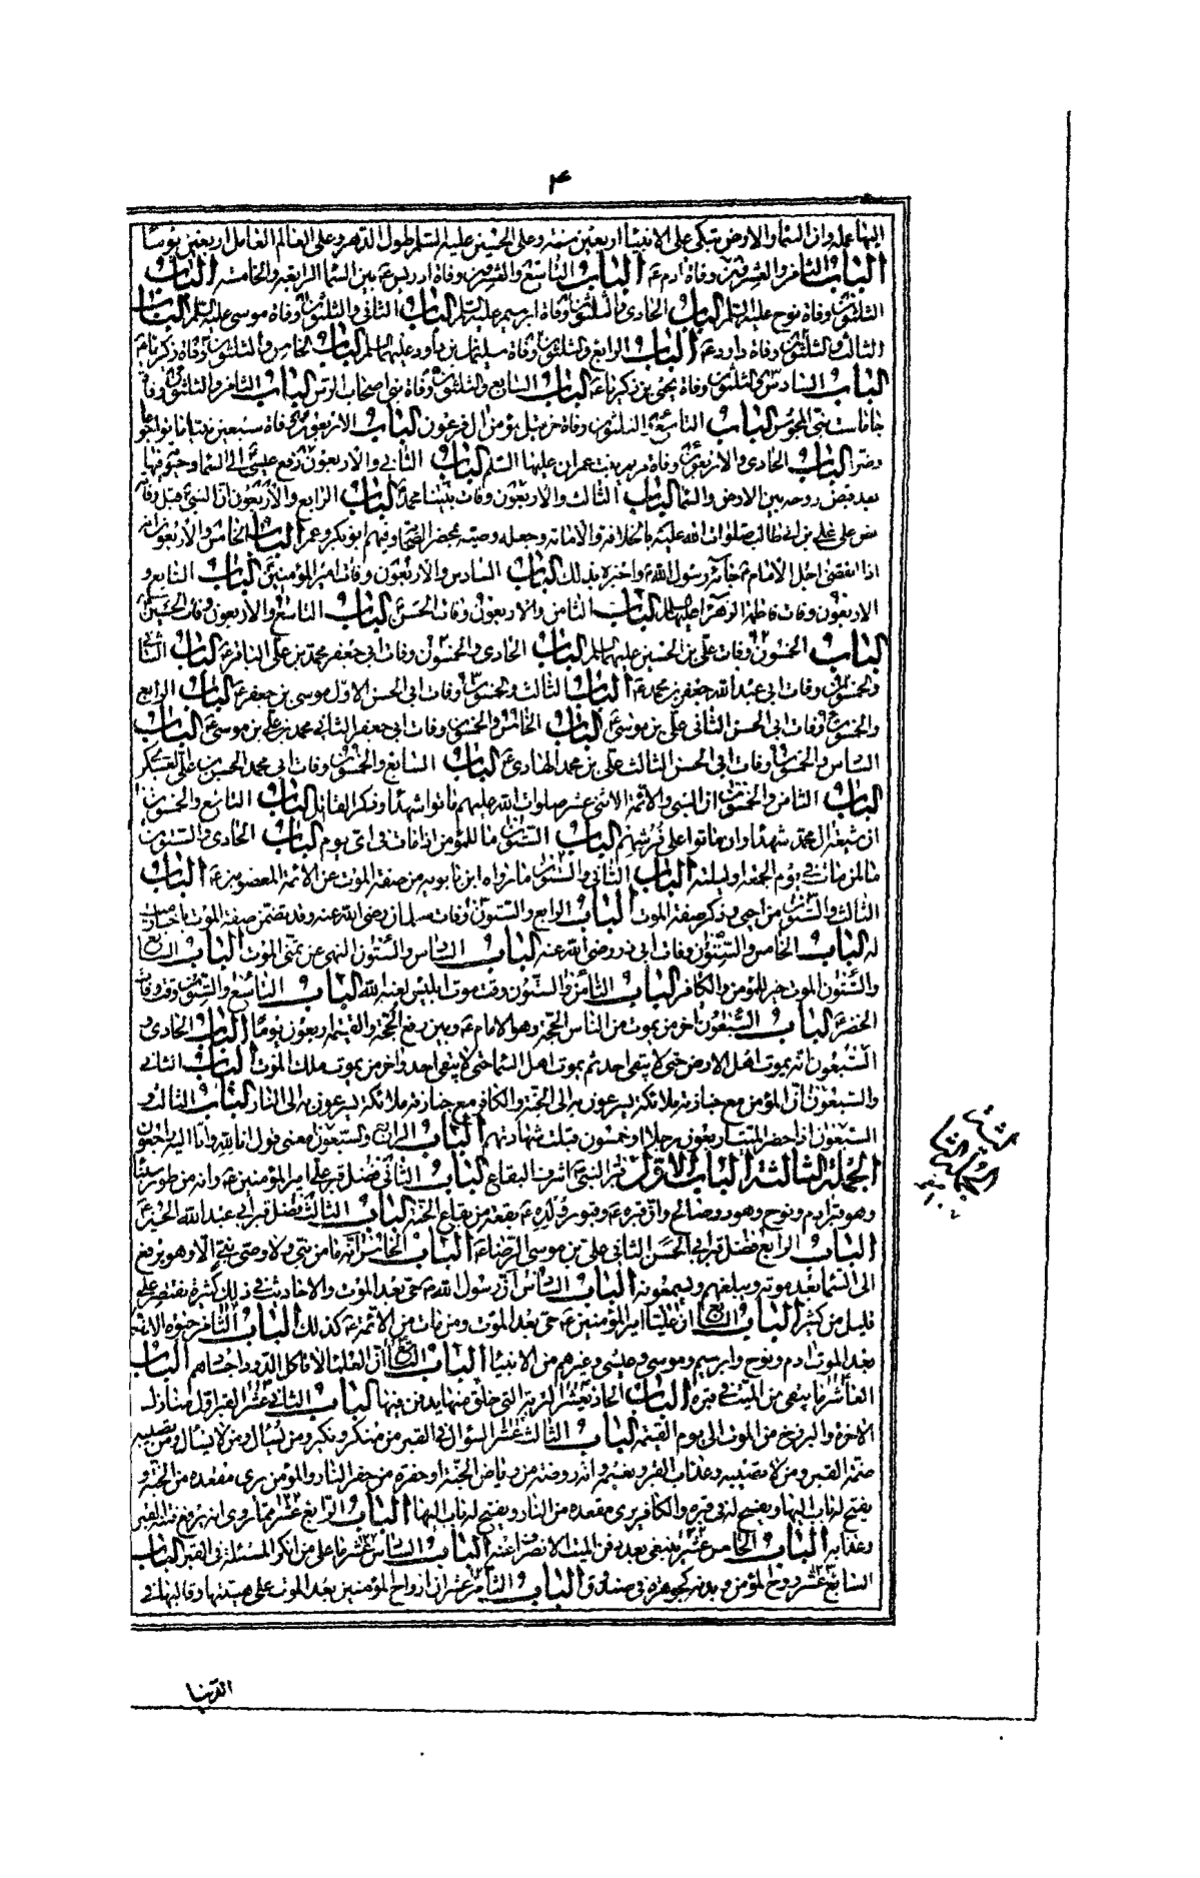 ۴
اليها عمله وان السماء والارض تبكى على الانبياء اربعين سنة وعلى الحسين عليه السلم طول الدهر وعلى العالم العامل اربعين يوما
الباب الثامن والعشرون وفاة ادم ع الباب التاسع والعشرون وفاة ادريس ع بين السماء الرابعة والخامسة الباب
الثلثون وفاة نوح عليه السلم الباب الحادى والثلثون وفاة ابرهيم عليه السلم الباب الثانى والثلثون وفاة موسى عليه السلم الباب
الثالث والثلثون وفاة داود ع الباب الرابع والثلثون وفاة سليمان بن داود عليهما السلم الباب الخامس والثلثون وفاة زكريا ع
الباب السادس والثلثون وفاة يحيى بن زكريا ع الباب السابع والثلثون وفاة نبى اصحاب الرس الباب الثامن والثلثون وفاة
جاماست نبى المجوس الباب التاسع والثلثون وفاة حزقيل مؤمن ال فرعون الباب الاربعون وفاة سبعين نبيا ماتوا جوعا
وضرا الباب الحادى والاربعون وفاة مريم بنت عمران عليها السلم الباب الثانى والاربعون رفع عيسى الى السماء حيا وفيها
بعد قبض روحه بين الارض والسماء الباب الثالث والاربعون وفات نبينا محمد الباب الرابع والاربعون ان النبى قبل وفاته
نص على على بن ابى طالب صلوات الله عليه بالخلافة والامامة وجعله وصيه بمحضر الصحابة وفيهم ابو بكر وعمر الباب الخامس والاربعون انه
اذا انقضى اجل الامام ع جاءه رسول الله واخبره بذلك الباب السادس والاربعون وفات امير المؤمنين الباب السابع و
الاربعون وفات فاطمة الزهراء عليها السلم الباب الثامن والاربعون وفات الحسن الباب التاسع والاربعون وفات الحسين
الباب الخمسون وفات على بن الحسين عليهما السلم الباب الحادى والخمسون وفات ابى جعفر محمد بن على الباقر ع الباب الثانى
والخمسون وفات ابى عبد الله جعفر بن محمد ع الباب الثالث والخمسون وفات ابى الحسن الاول موسى بن جعفر ع الباب الرابع
والخمسون وفات ابى الحسن الثانى على بن موسى الباب الخامس والخمسون وفات ابى جعفر الثانى محمد بن على بن موسى الباب
السادس والخمسون وفات ابى الحسن الثالث على بن محمد الهادى ع الباب السابع والخمسون وفات ابى محمد الحسن بن على العسكرى
الباب الثامن والخمسون ان النبى والائمة الاثنى عشر صلوات الله عليهم ماتوا شهداء وذكر القاتل الباب التاسع والخمسون
ان شيعة ال محمد شهداء وان ماتوا على فرشهم الباب الستون ما للمؤمن اذا مات فى اى يوم الباب الحادى والستون
ما لمن مات فى يوم الجمعة وليلته الباب الثانى والستون ما رواه ابن بابويه من صفة الموت عن الائمة المعصومين ع الباب
الثالث والستون من احيى وذكر صفة الموت الباب الرابع والستون وفات سلمان رضى الله عنه وقد يتضمن صفة الموت
له الباب الخامس والستون وفات ابى ذر رضى الله عنه الباب السادس والستون النهى عن تمنى الموت الباب السابع
والستون الموت خير للمؤمن والكافر الباب الثامن والستون وقت موت ابليس لعنه الله الباب التاسع والستون وقت وفات
الخضر ع الباب السبعون اخر من يموت من الناس الحجة وهو الامام ع وبين رفع الحجة والقيمة اربعون يوما الباب الحادى و
السبعون انه يموت اهل الارض حتى لا يبقى احد ثم يموت اهل السماء حتى لا يبقى احد واخر من يموت ملك الموت الباب الثانى
والسبعون ان المؤمن مع جنازته ملائكة يسرعون به الى الجنة والكافر مع جنازته ملائكة يسرعون به الى النار الباب الثالث و
السبعون اذا حضر الميت اربعون رجلا او خمسون قبلت شهادتهم الباب الرابع والسبعون معنى قول انا لله وانا اليه راجعون
الجملة الثالثة الباب الاول قبر النبى ع اشرف البقاع الباب الثانى فضل قبر على امير المؤمنين ع وانه من طور سيناء
وهو قبر ادم ونوح وهود وصالح وان قبره ع وقبور ولده ع بقعة من بقاع الجنة الباب الثالث فضل قبر ابى عبد الله الحسين ع
الباب الرابع فضل قبر ابى الحسن الثانى على بن موسى الرضا ع الباب الخامس انه ما من نبى ولا وصى نبى الا وهو يرفع
الى السماء بعد موته ويبلغهم ويسمعونه الباب السادس ان رسول الله ص حى بعد الموت والاحاديث فى ذلك كثيرة نقتصر على
قليل من كثير الباب السابع ان عليا امير المؤمنين ع حى بعد الموت ومن مات من الائمة ع كذلك الباب الثامن حيوة الانبياء
بعد الموت ادم ونوح وابرهيم وموسى وعيسى وغيرهم من الانبياء الباب التاسع ان العلماء لا تاكل الدود اجسادهم الباب
العاشر ما يبقى من الميت فى قبره الباب الحادى عشر التربة التى خلق منها يدفن فيها الباب الثانى عشر القبر اول منازل
الاخرة والبرزخ من الموت الى يوم القيمة الباب الثالث عشر السؤال فى القبر من منكر ونكير ومن يسئل ومن لا يسئل ومن تصيبه
ضمة القبر ومن لا تصيبه وعذاب القبر ونعيمه وانه روضة من رياض الجنة او حفرة من حفر النار والمؤمن يرى مقعده من الجنة و
يفتح له باب اليها ويفسح له فى قبره والكافر يرى مقعده من النار ويفتح له باب اليها الباب الرابع عشر مما روى انه يرفع فتنة القبر
وعذابه الباب الخامس عشر ينبغى بعد دفن الميت الانصراف عنه الباب السادس عشر ما على من انكر المسئلة فى القبر الباب
السابع عشر روح المؤمن وبدنه كجوهرة فى صندوق الباب الثامن عشر ان ارواح المؤمنين بعد الموت على هيئتها وقالبها فى
الدنيا